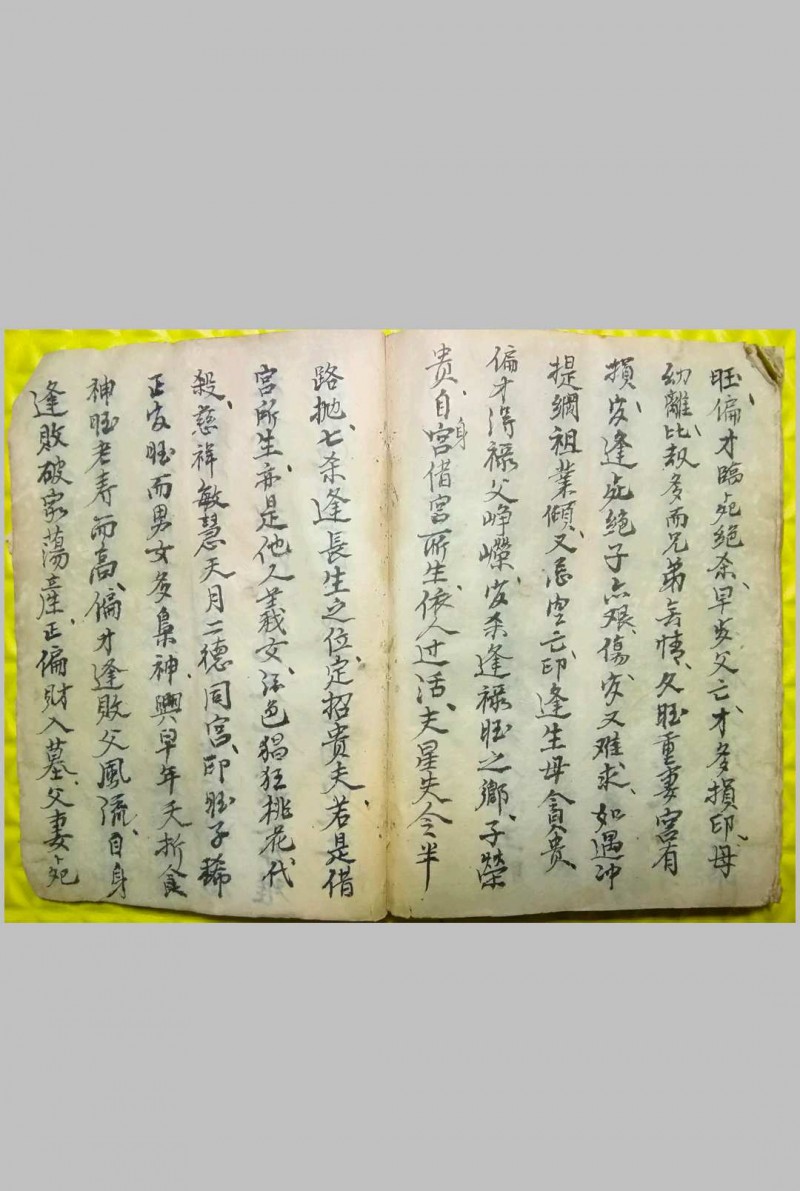 旺、偏才臨死絕、杀、早岁父亡、才多損印、母
幼離、比刼多而兄弟無情、久旺重妻宮有
損、官逢死絕子亦艰、傷官又难求、如遇冲
提綱祖業傾、又忌空亡、印逢生母貪貴
偏才得祿父崢嶸、官杀逢祿旺之鄉、子榮
貴、自身宮借宮所生、依人过活、夫星失令半
路拋、七杀逢長生之位、定招貴夫、若是借
宮所生、亦是他人義女、 色猖狂桃花代
殺、慈祥敏慧天月二德同宮、印旺子稀
正官旺而男女多梟神、興早年夭折食
神旺老寿而高、偏才逢敗父風流、自身
逢敗破家蕩產、正偏財入墓、父妻死